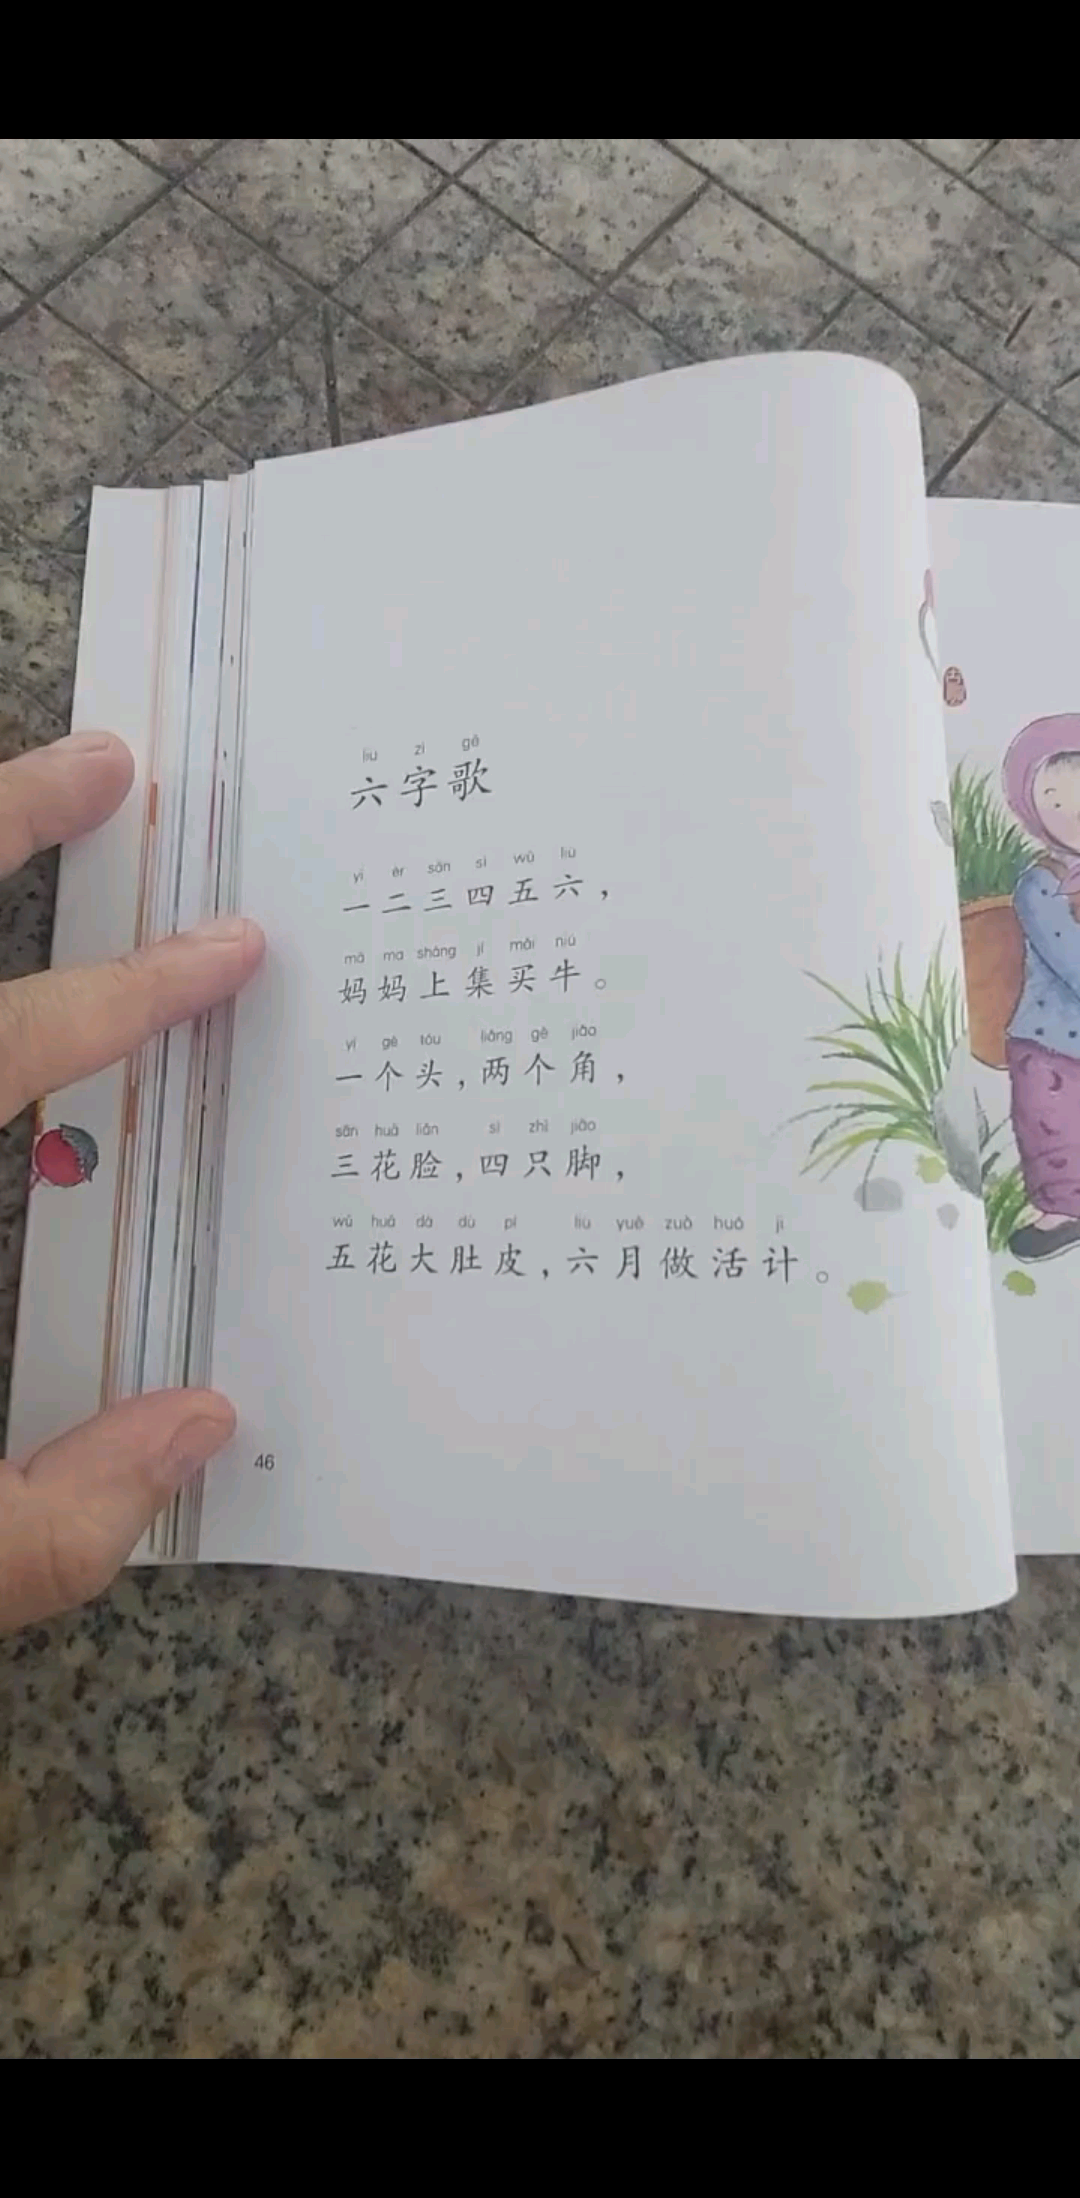 liù zì gē
六字歌
yī èr sān sì wǔ liù
一二三四五六，
mā ma shàng jí mǎi niú
妈妈上集买牛。
yí gè tóu liǎng gè jiǎo
一个头，两个角，
sān huā liǎn sì zhī jiǎo
三花脸，四只脚，
wǔ huā dà dù pí liù yuè zuò huó jì
五花大肚皮，六月做活计。
46